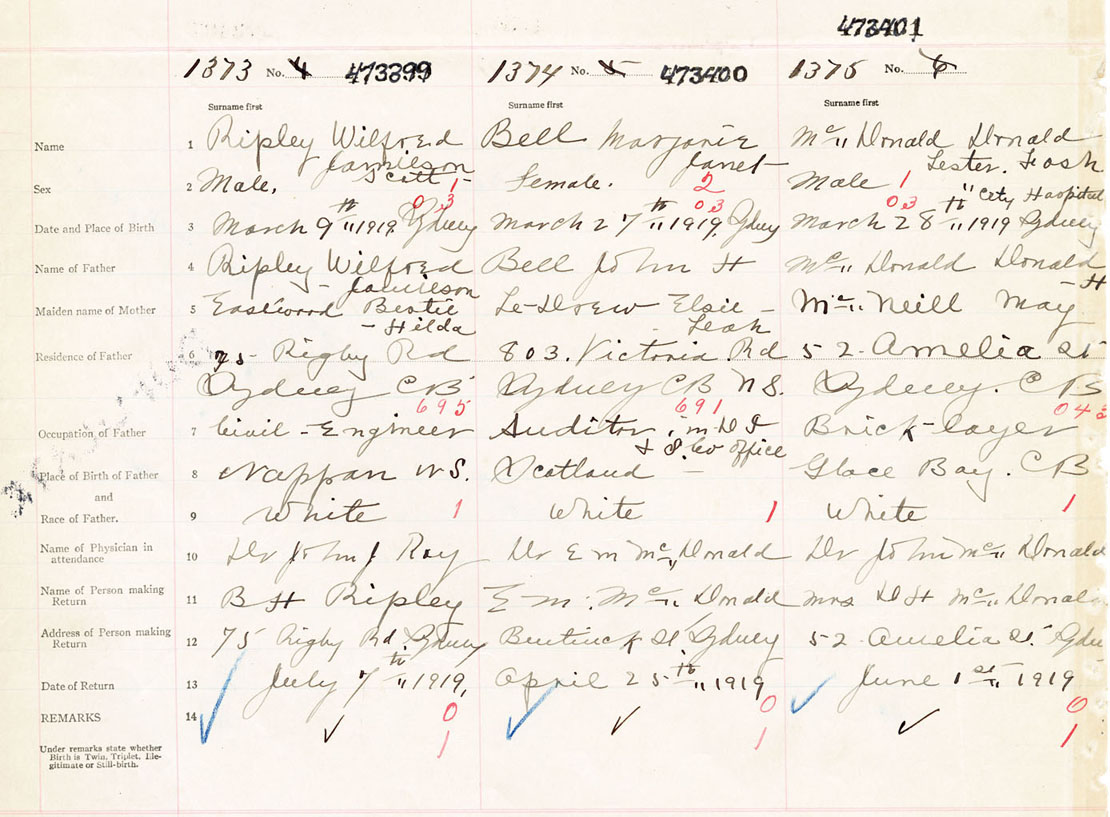 473401
1373 No. 4 473399 1374 No. 5 473400 1375 No. 6
Surname first Surname first Surname first
Name 1 Ripley Wilfred Bell Marjorie Mc" Donald Donald
Jamieson Janet Lester. Fash
Sex 2 Male. Scott 1 Female. 2 Male 1
03 03 03 " City Hospital
Date and Place of Birth 3 March 9th " 1919 Sydney March 27th " 1919, Sydney March 28th " 1919 Sydney
Name of Father 4 Ripley Wilfred Bell John H Mc" Donald Donald
- Jamieson H
Maiden name of Mother 5 Eastwood Bertie Le-Drew Elsie - Mc" Neill May
- Hilda - Leah
Residence of Father 6 75 - Rigby Rd 803. Victoria Rd 52 - Amelia St
Sydney CB Sydney CB N.S. Sydney. CB
695 691 043
Occupation of Father 7 Civil - Engineer Auditor, in D I Brick-layer
& S. Co Office
Place of Birth of Father 8 Nappan N S. Scotland - Glace Bay. CB
and
Race of Father. 9 White 1 White 1 White 1
Name of Physician in
attendance 10 Dr John J Roy Dr E M Mc" Donald Dr John Mc" Donald
Name of Person making
Return 11 B H Ripley E. M. Mc" Donald Mrs D H Mc" Donald
Address of Person making
Return 12 75 Rigby Rd. Sydney Bentinck St. Sydney 52 - Amelia St Sydn
Date of Return 13 July 7th " 1919, April 25th " 1919 June 1st " 1919
REMARKS 14 ✓ ✓ 0 ✓ ✓ 0 ✓ ✓ 0
1 1 1
Under remarks state whether
Birth is Twin, Triplet, Ille-
gitimate or Still-birth.